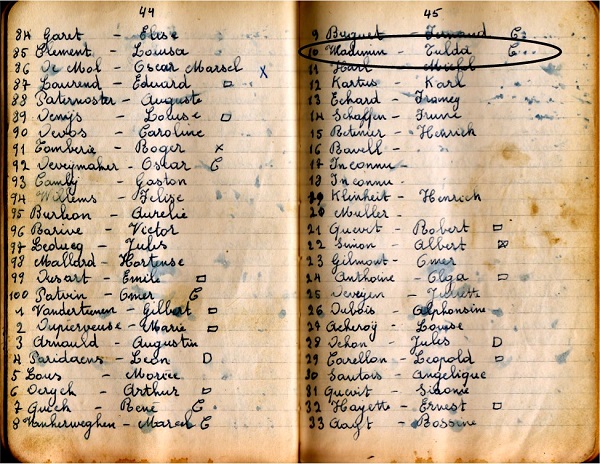 44
84 Garet - Elise
85 Clement - Louisa
86 De Mol - Oscar Marsel x
87 Laurend - Eduard
88 Paternoster - Auguste
89 Denys - Louise
90 Devos - Caroline
91 Tomberie - Roger x
92 Deveymaker - Oscar C
93 Camby - Gaston
94 Willems - Felise
95 Burlion - Aurelie
96 Barive - Victor
97 Leducq - Jules
98 Mallard - Hortense
99 Dusart - Emile
100 Patvin - Omer C
1 Vandertemen - Gilbert
2 Dupierreuse - Marie
3 Arnauld - Augustin
4 Paridaens - León D
5 Lous - Mariée
6 Derych - Arthur
7 Guech - Bené C
8 Vanherweghen - Marcel C
45
9 Buguet - Fernand C
10 Madimin - Tulda C
11 Harl - Michel
12 Kartus - Karl
13 Echard - Framey
14 Schaffen - Irune
15 Betmer - Henrich
16 Bavell -
17 Inconnu
18 Inconnu
19 Kleinheit - Henrich
20 Muller -
21 Guevit - Robert
22 Simon - Albert
23 Gilmont - Omer
24 Anthoine - Olga
25 Deveyen -
26 Dubois - Alphonsine
27 Acheroÿ - Louise
28 Dehon - Jules D
29 Carellon - Leopold
30 Santois - Angelique
31 Quevit - Sidonie
32 Hayette - Ernest
33 - Bossine